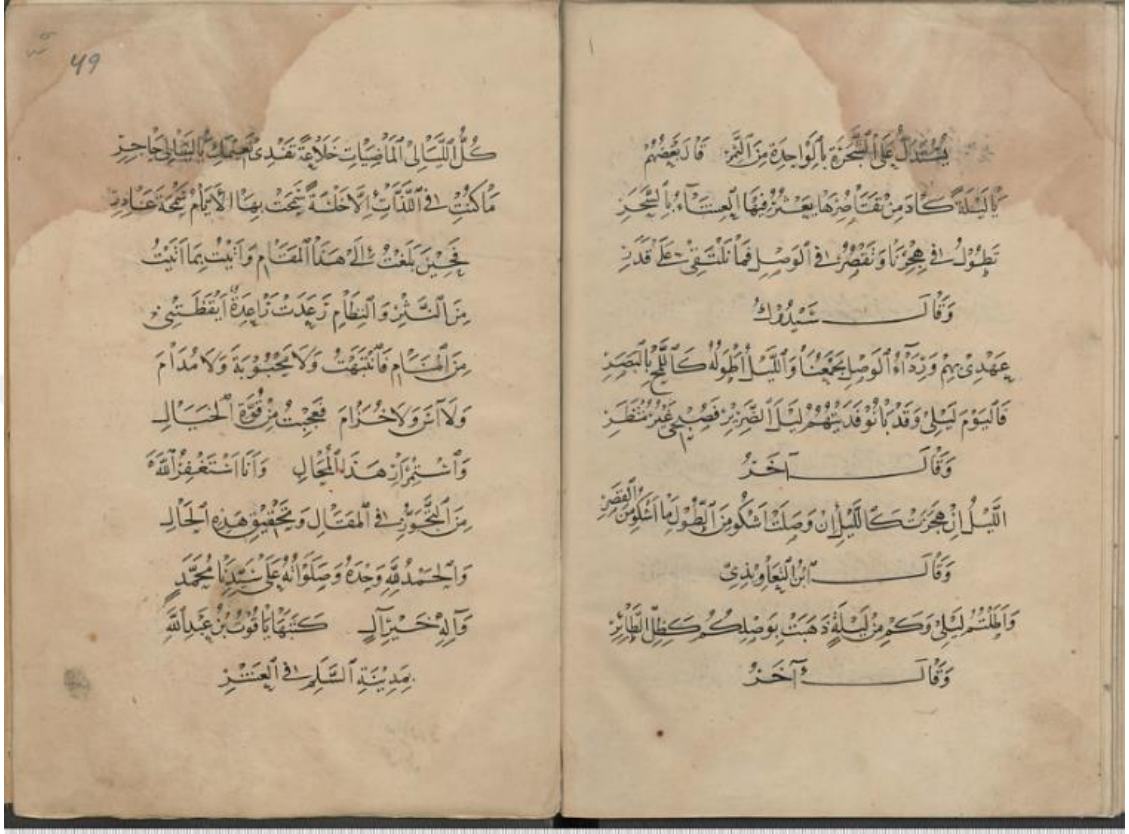 يستدل على الشجرة بالواحدة من الثمر قال بعضهم
يا ليلة كاد من تقاصرها يعثر فيها العشاء بالسحر
تطول في هجرنا وتقصر في الوصل فما نلتقي على قدر
وقال شيدوك
عهدي بهم ورداء الوصل يجمعنا والليل أطوله كاللمح بالبصر
فاليوم ليلى وقد بانو فديتهم ليل الضرير فصبحي غير منتظر
وقال آخر
الليل إن هجرت كالليل إن وصلت أشكو من الطول ما أشكو من القصر
وقال ابن التعاويذي
وأطلتم ليلى وكم من ليلة ذهبت بوصلكم كظل الطائر
وقال آخر
49
كل الليالي الماضيات خلاعة تفدي بالليالي حاجر
ما كنت في اللذات إلا خلسة سمحت بها الأيام سمحة غادر
فحين بلغت إلى هذا المقام وأتيت بما أتيت
من النثر والنظام رعدت راعدة أيقظتني
من المنام فانتبهت ولا محبوبة ولا مدام
ولا آس ولا خزام فعجبت من قوة الخيال
واستمرار هذا المحال وأنا استغفر الله
من التجوز في المقال وتحقيق هذه الحال
والحمد لله وحده وصلواته على سيدنا محمد
وآله خير آل كتبها ياقوت بن عبد الله
بمدينة السلم في العشر